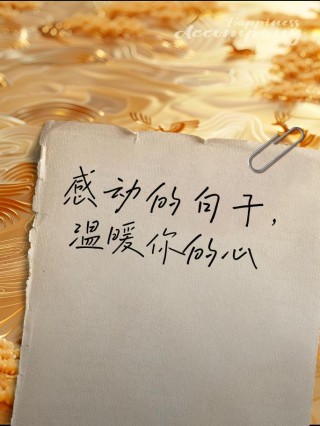 Happiness
Accompany
感动的句子,
温暖你的心